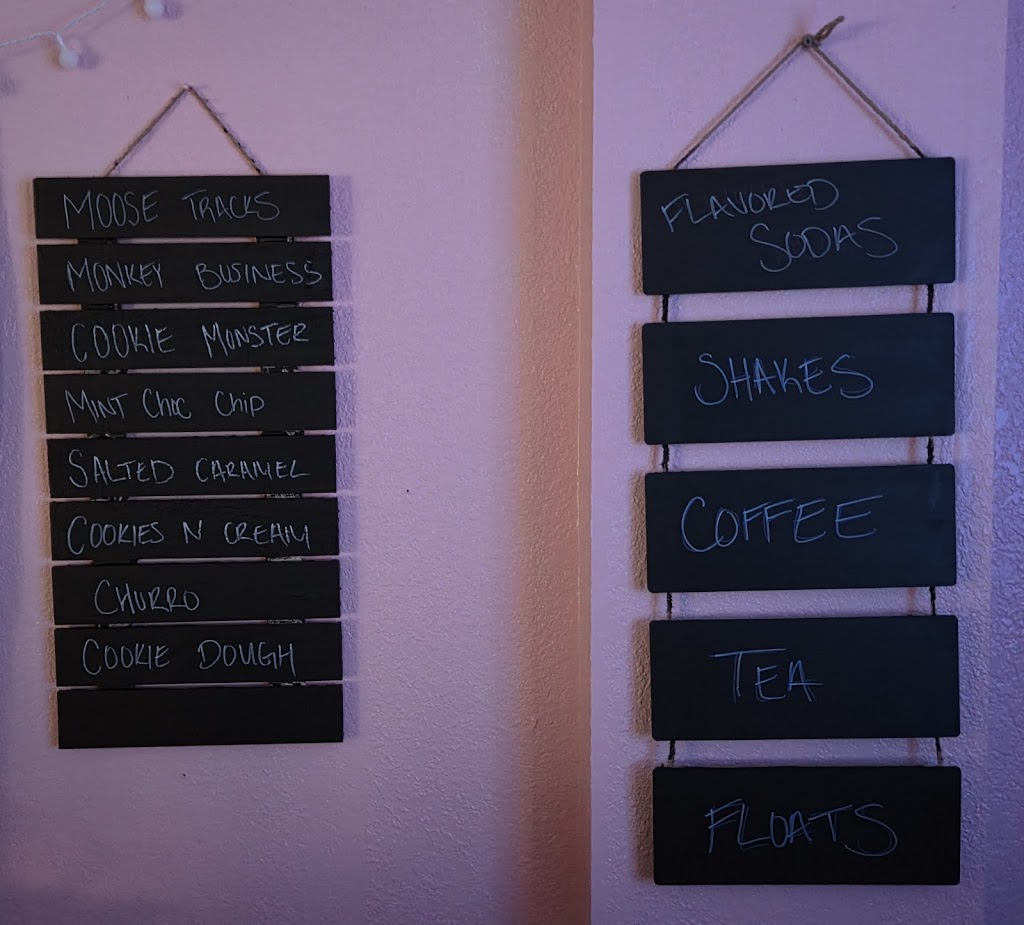 MOOSE TRACKS
MONKEY BUSINESS
COOKIE MONSTER
MINT CHOC CHIP
SALTED CARAMEL
COOKIES N CREAM
CHURRO
COOKIE DOUGH
FLAVORED
SODAS
SHAKES
COFFEE
TEA
FLOATS